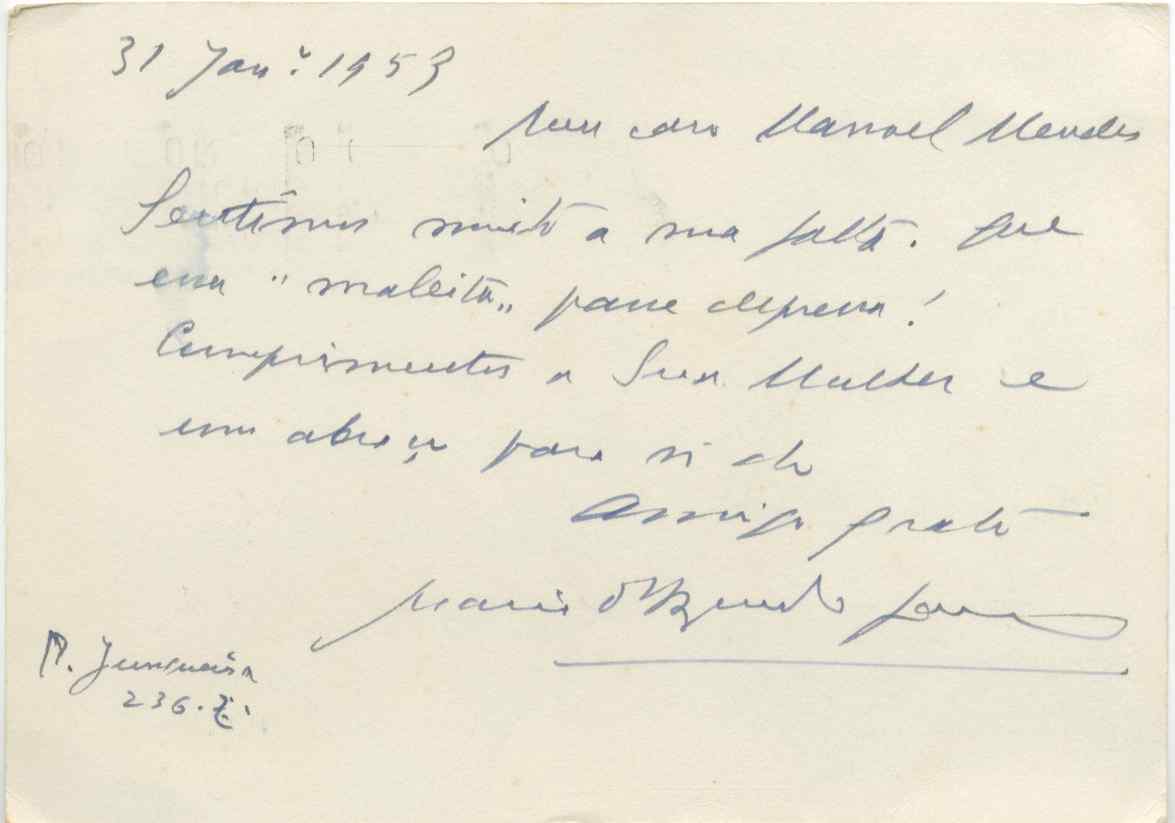 31 Janº. 1953
Meu caro Manoel Mendes
Sentimos muito a sua falta. Que
essa "maleita" passe depressa!
Cumprimentos a Sua Mulher e
um abraço para si do
Amigo grato
Mario d'Azevedo Gomes
R. Junqueira
236.